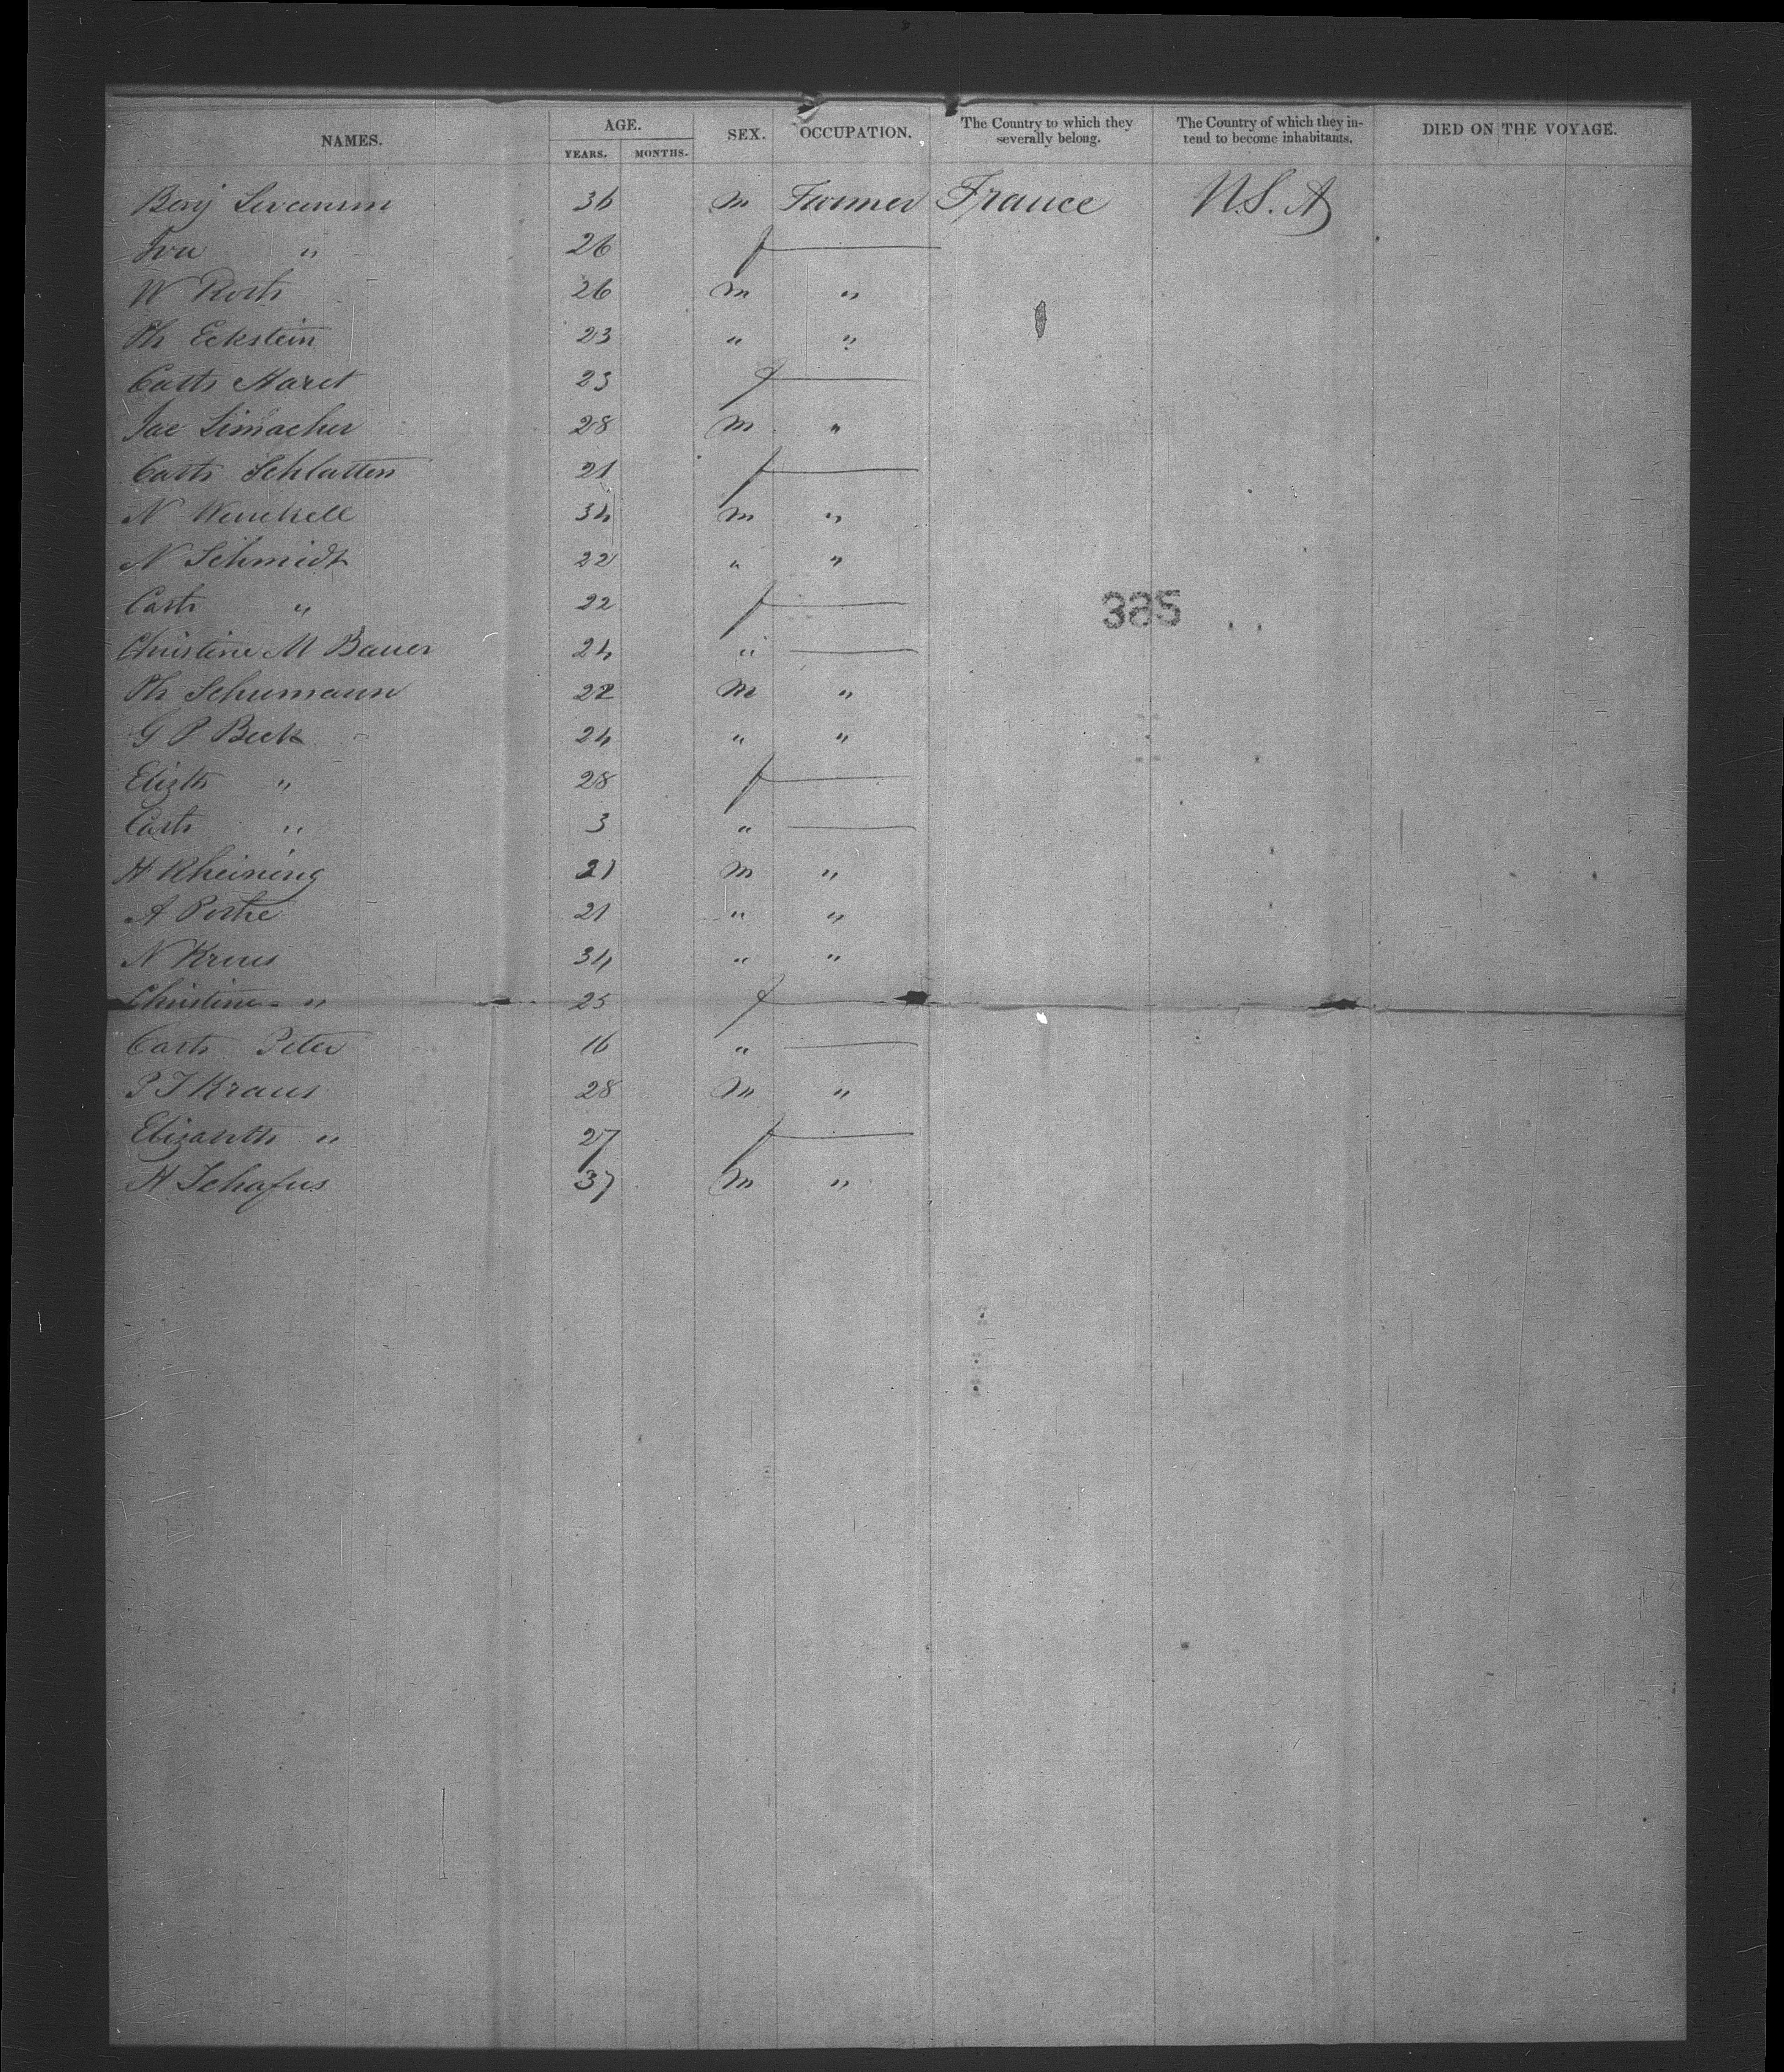 NAMES. AGE. SEX. OCCUPATION. The Country to which they severally belong. The Country of which they in- tend to become inhabitants. DIED ON THE VOYAGE.
YEARS. MONTHS.
Benj 36 m Farmer France U.S.A
" 26 f
W Roth 26 m "
Ph Eckstein 23 " "
Cath 23 f
Jac Simacher 28 m "
Cath Schlatten 21 f
N 34 m "
N Schmidt 22 " "
Cath " 22 f
Christine M Bauer 24 "
Ph Schumann 22 m "
G P Beck 24 " "
Elizth " 28 f
Cath " 3 "
H Rheining 21 m "
A 21 " "
N 34 " "
Christine " 25 f
Cath Peter 16 "
P J Kraus 28 m "
Elizabeth " 27 f
H Schafus 37 m "
385